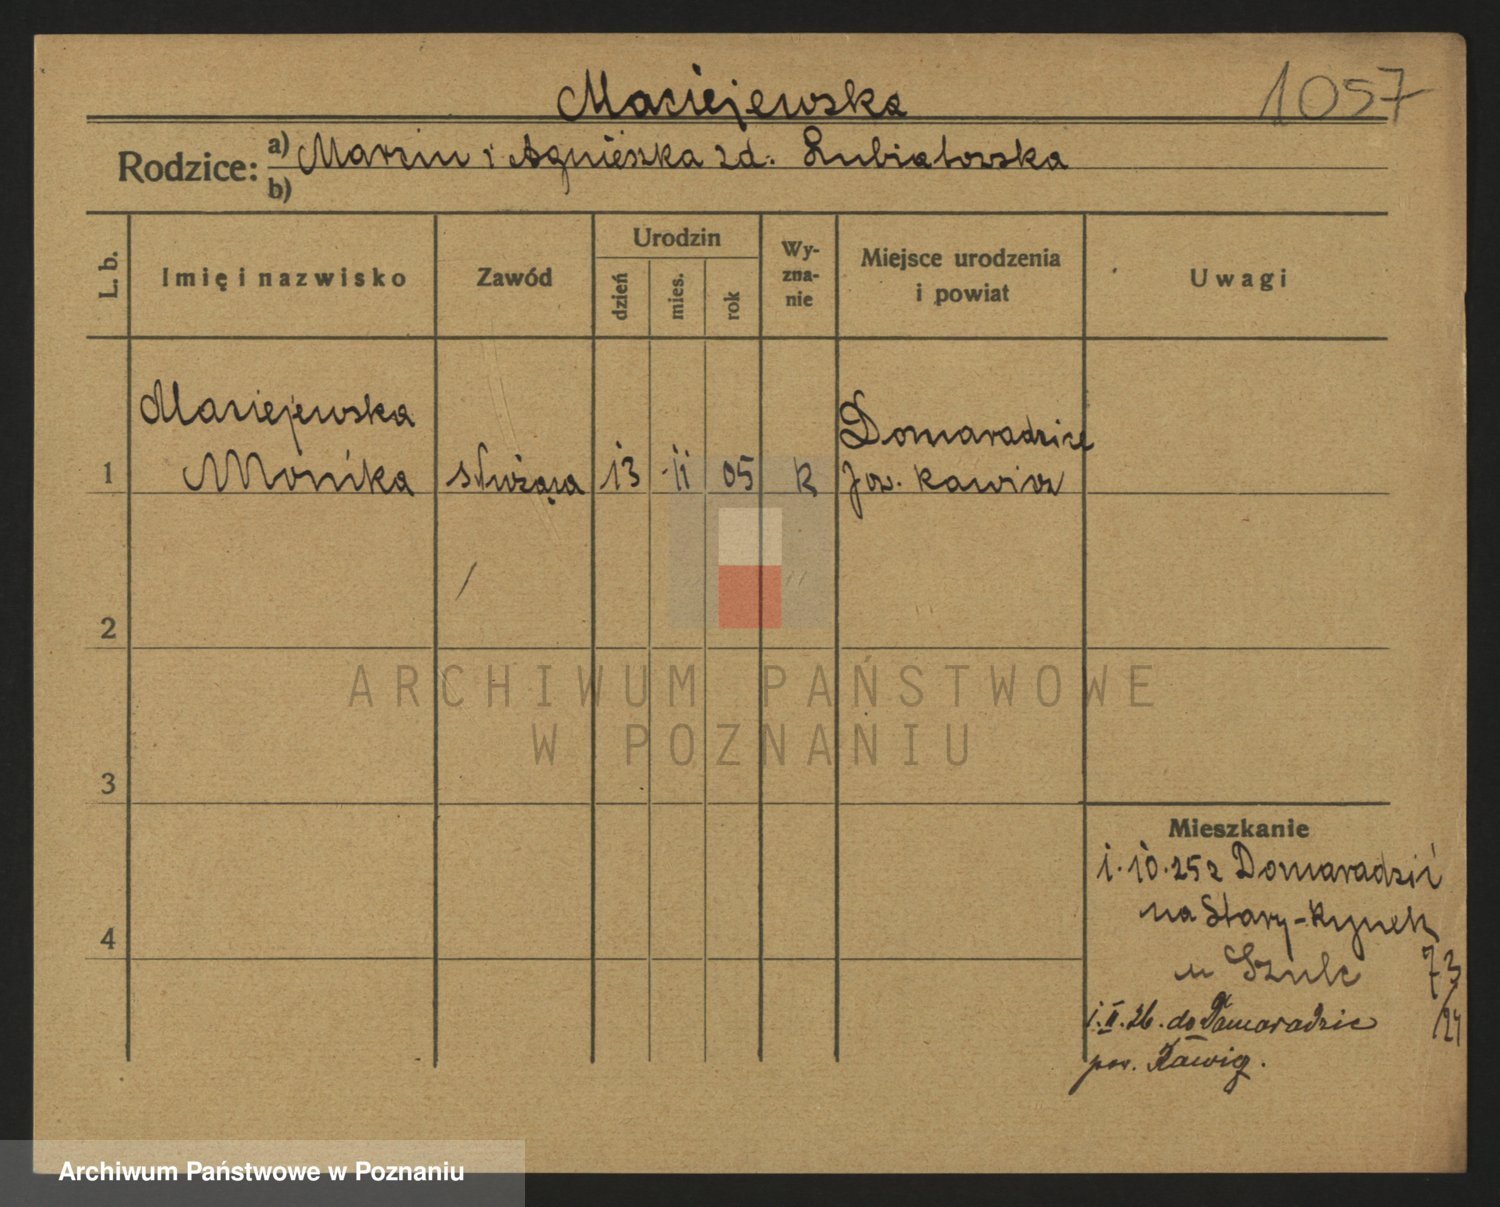 Maciejewska
1057
Rodzice: a) Marcin i Agnieszka zd. Lubiatowska
b)
L. b.
Imię i nazwisko
Zawód
Urodzin
dzień
mies.
rok
Wy-
zna-
nie
Miejsce urodzenia
i powiat
Uwagi
Maciejewska
Domaradzice
1 Monika służąca 13 11 05 K pow. Rawicz
2
3
4
ARCHIWUM PAŃSTWOWE
W POZNANIU
Mieszkanie
1.10.25 z Domaradzic
na Stary-Rynek
u Szulc 73/24
1.II.26. do Domaradzic
pow. Rawicz.
Archiwum Państwowe w Poznaniu